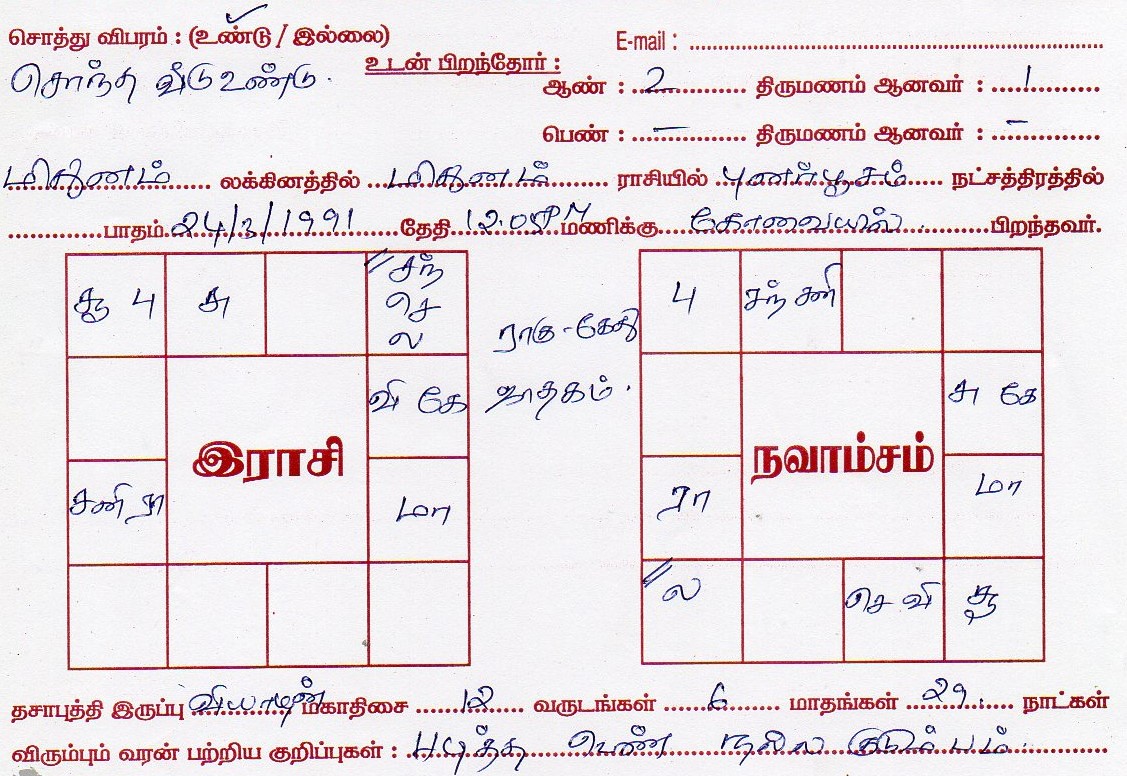 சொத்து விபரம் : (உண்டு / இல்லை)
E-mail :
சொந்த வீடு உண்டு.
உடன் பிறந்தோர் :
ஆண் : 2 திருமணம் ஆனவர் : 1
பெண் : – திருமணம் ஆனவர் : –
மிதுனம் லக்கினத்தில் மிதுனம் ராசியில் புனர்பூசம் நட்சத்திரத்தில்
பாதம் 24/3/1991 தேதி 12.05PM மணிக்கு கோவையில் பிறந்தவர்.
சூ பு
சு
சந்
செ
ல
வி கே
இராசி
சனி ரா
மா
ராகு - கேது
ஜாதகம்.
பு
சந் சனி
சு கே
நவாம்சம்
ரா
மா
ல
செ வி
சூ
தசாபுத்தி இருப்பு வியாழன் மகாதிசை 12 வருடங்கள் 6 மாதங்கள் 29 நாட்கள்
விரும்பும் வரன் பற்றிய குறிப்புகள் : படித்த பெண் நல்ல குடும்பம்.